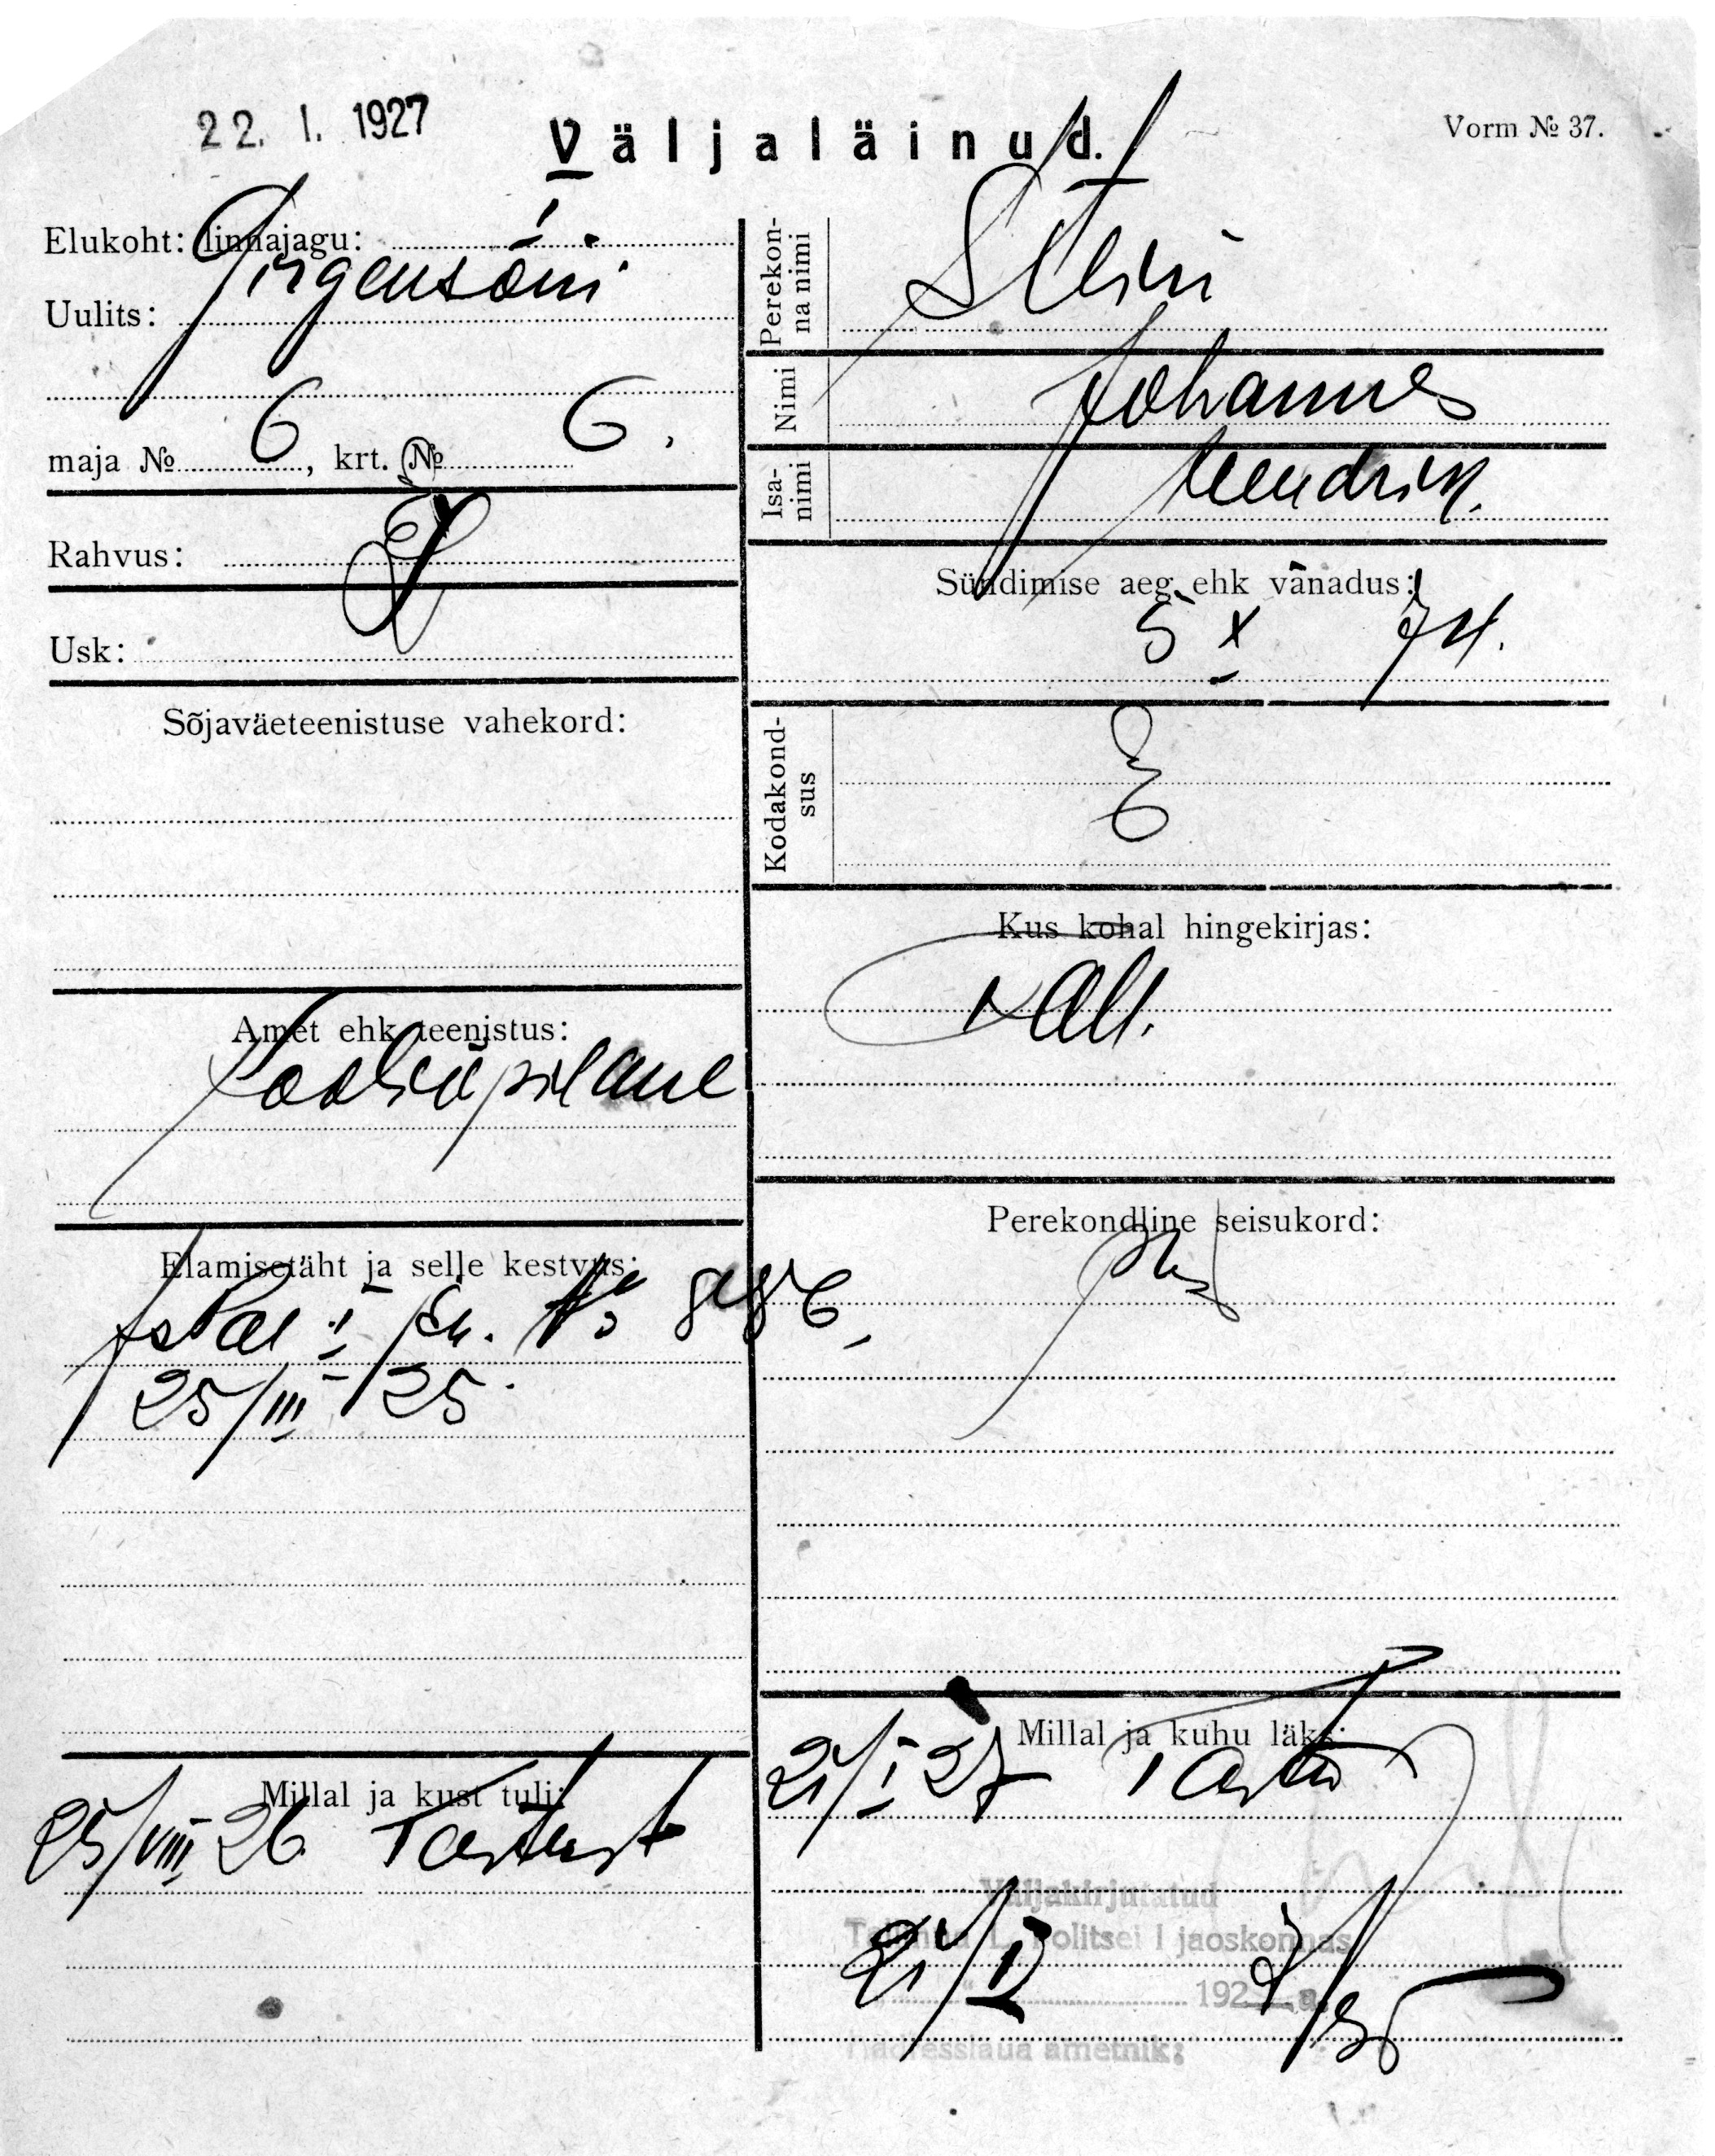 22. I. 1927
Väljaläinud.
Vorm № 37.
Elukoht: linnajagu: I.
Uulits: Girgensoni
maja № 6, krt. № 6.
Rahvus: E
Usk:
Sõjaväeteenistuse vahekord:
Amet ehk teenistus:
Elamisetäht ja selle kestvus:
25/III 25
Millal ja kust tuli:
25/VIII 26 Tartust
Perekonna nimi Stein
Nimi Johannes
Isanimi Hendrik.
Sündimise aeg ehk vanadus:
5 X
Kodakondsus E
Kus kohal hingekirjas:
Tall.
Perekondline seisukord:
Millal ja kuhu läks:
21/I 27 Tartu
Väljakirjutatud
Tallinna L. Politsei I jaoskonnas
21/I 1927 a.
Aadresslaua ametnik: